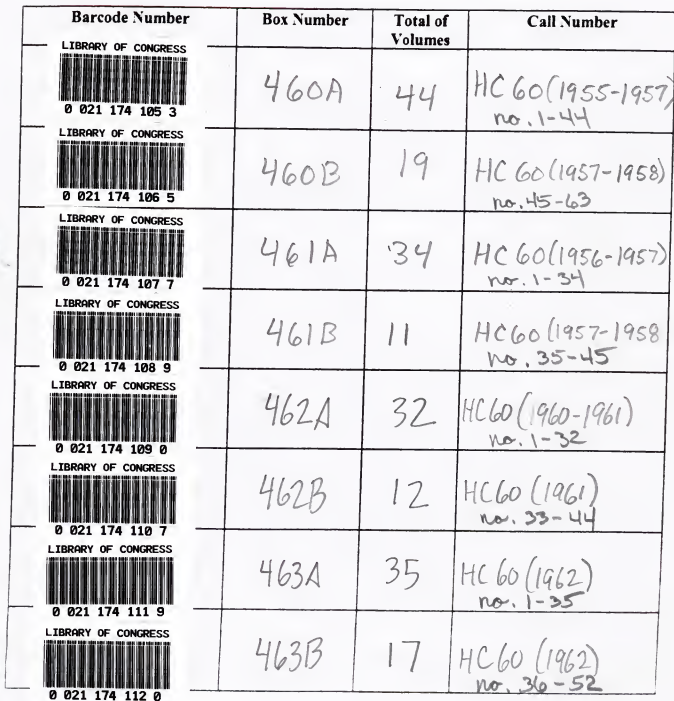 Barcode Number Box Number Total of Volumes Call Number
LIBRARY OF CONGRESS
0 021 174 105 3
460A 44 HC 60(1955-1957)
no. 1-44
LIBRARY OF CONGRESS
0 021 174 106 5
460B 19 HC 60(1957-1958)
no. 45-63
LIBRARY OF CONGRESS
0 021 174 107 7
461A 34 HC 60(1956-1957)
no. 1-34
LIBRARY OF CONGRESS
0 021 174 108 9
461B 11 HC60(1957-1958
no. 35-45
LIBRARY OF CONGRESS
0 021 174 109 0
462A 32 HC60(1960-1961)
no. 1-32
LIBRARY OF CONGRESS
0 021 174 110 7
462B 12 HC60 (1961)
no. 33-44
LIBRARY OF CONGRESS
0 021 174 111 9
463A 35 HC 60 (1962)
no. 1-35
LIBRARY OF CONGRESS
0 021 174 112 0
463B 17 HC60 (1962)
no. 36-52